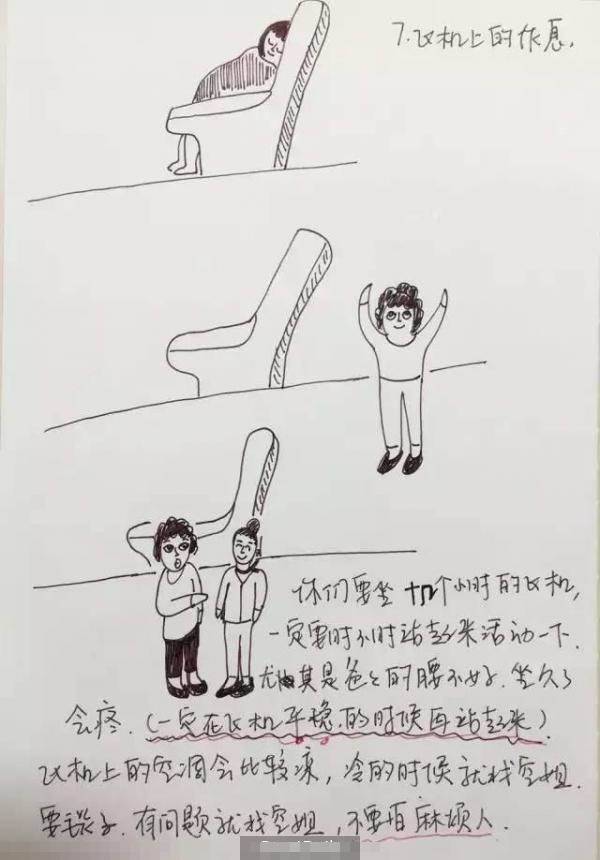 7.飞机上的作息.
你们要坐十几个小时的飞机,
一定要时不时站起来活动一下.
尤其是爸爸的腰不好.坐久了
会疼.(一定在飞机平稳的时候再站起来)
飞机上的空调会比较凉,冷的时候就找空姐.
要毯子.有问题就找空姐,不要怕麻烦人.